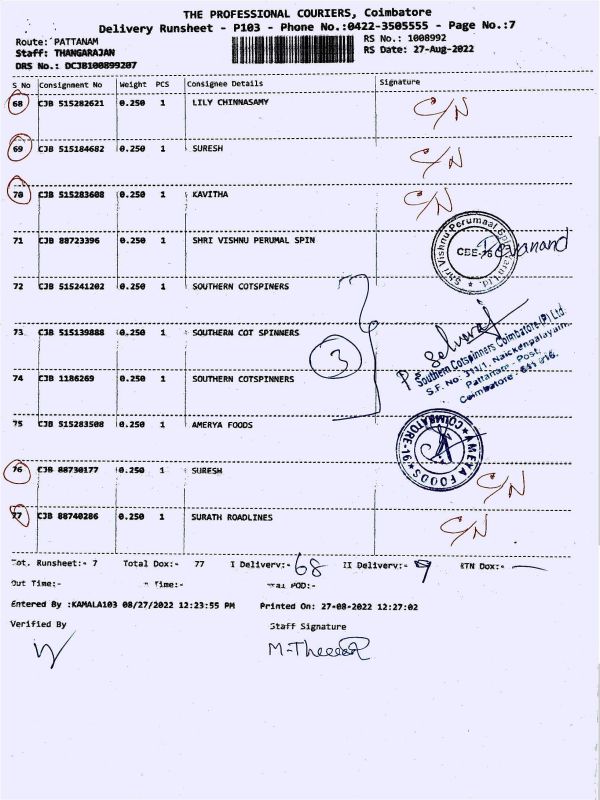 THE PROFESSIONAL COURIERS, Coimbatore
Delivery Runsheet - P103 - Phone No.:0422-3505555 - Page No.:7
Route: PATTANAM RS No.: 1008992
Staff: THANGARAJAN RS Date: 27-Aug-2022
DRS No.: DCJB100899207
S No Consignment No Weight PCS Consignee Details Signature
68 CJB 515282621 0.250 1 LILY CHINNASAMY C/N
69 CJB 515184682 0.250 1 SURESH C/N
70 CJB 515283608 0.250 1 KAVITHA C/N
71 CJB 88723396 0.250 1 SHRI VISHNU PERUMAL SPIN
Shri Vishnu Perumaal Spinners Ltd.
CBE-16
Devanand
72 CJB 515241202 0.250 1 SOUTHERN COTSPINNERS
73 CJB 515139888 0.250 1 SOUTHERN COT SPINNERS
3
P. Selvaraj
Southern Cotspinners Coimbatore (P) Ltd.
S.F. No. 311/1, Naickenpalayam,
Pattanam Post,
Coimbatore - 641 016.
74 CJB 1186269 0.250 1 SOUTHERN COTSPINNERS
75 CJB 515283508 0.250 1 AMERYA FOODS
AMEYA FOODS COIMBATORE-16
76 CJB 88730177 0.250 1 SURESH C/N
77 CJB 88740286 0.250 1 SURATH ROADLINES C/N
Tot. Runsheet:- 7 Total Dox:- 77 I Delivery:- 68 II Delivery:- 9 RTN Dox:- —
Out Time:- Time:- POD:-
Entered By :KAMALA103 08/27/2022 12:23:55 PM Printed On: 27-08-2022 12:27:02
Verified By Staff Signature